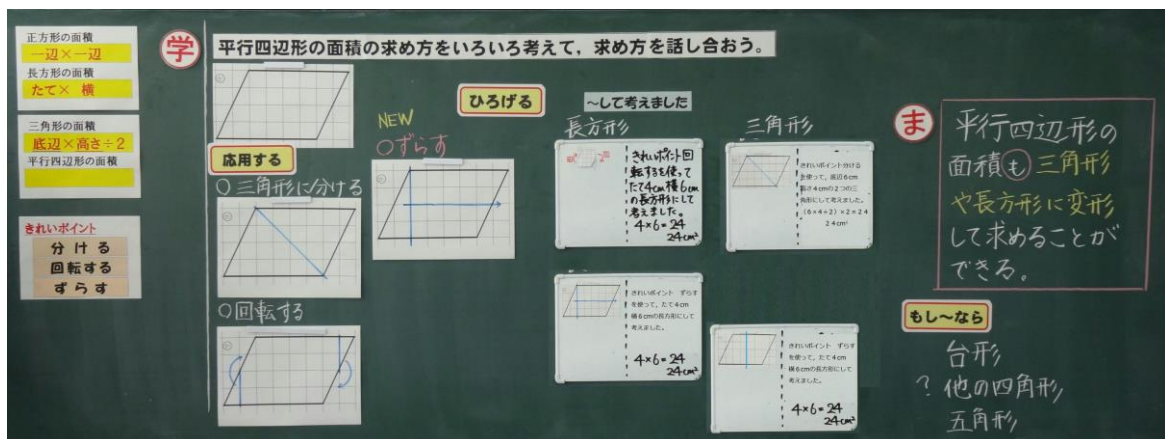 正方形の面積
一辺×一辺
長方形の面積
たて× 横
三角形の面積
底辺×高さ÷2
平行四辺形の面積
きれいポイント
分ける
回転する
ずらす
学
平行四辺形の面積の求め方をいろいろ考えて，求め方を話し合おう。
応用する
○三角形に分ける
○回転する
NEW
○ずらす
ひろげる
～して考えました
長方形
きれいポイント回
転するを使って
たて4cm横6cm
の長方形にして
考えました。
4×6=24
24cm²
きれいポイント ずらす
を使って，たて4cm
横6cmの長方形にして
考えました。
4×6=24
24cm²
三角形
きれいポイント分ける
を使って，底辺6cm
高さ4cmの2つの三
角形にして考えました。
(6×4÷2)×2=24
24cm²
きれいポイント ずらす
を使って，たて4cm
横6cmの長方形にして
考えました。
4×6=24
24cm²
ま
平行四辺形の
面積も三角形
や長方形に変形
して求めることが
できる。
もし～なら
台形
? 他の四角形
五角形